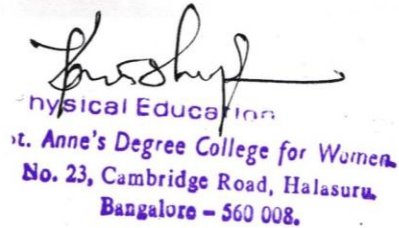 hysical Education
t. Anne's Degree College for Women
No. 23, Cambridge Road, Halasuru.
Bangalore – 560 008.